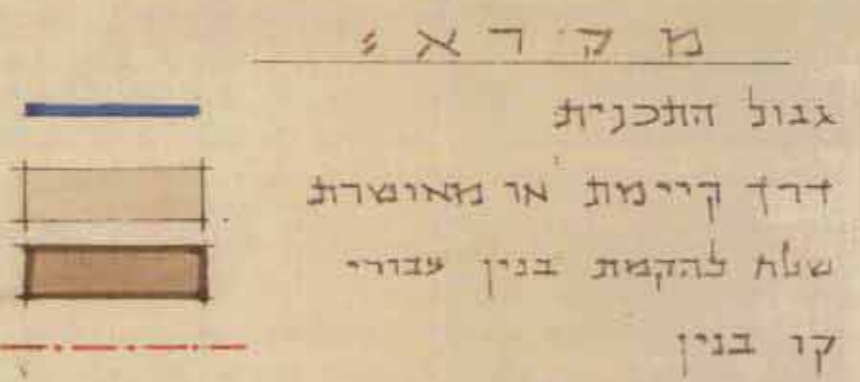 מקרא:
גבול התכנית
דרך קיימת או מאושרת
שטח להקמת בנין צבורי
קו בנין